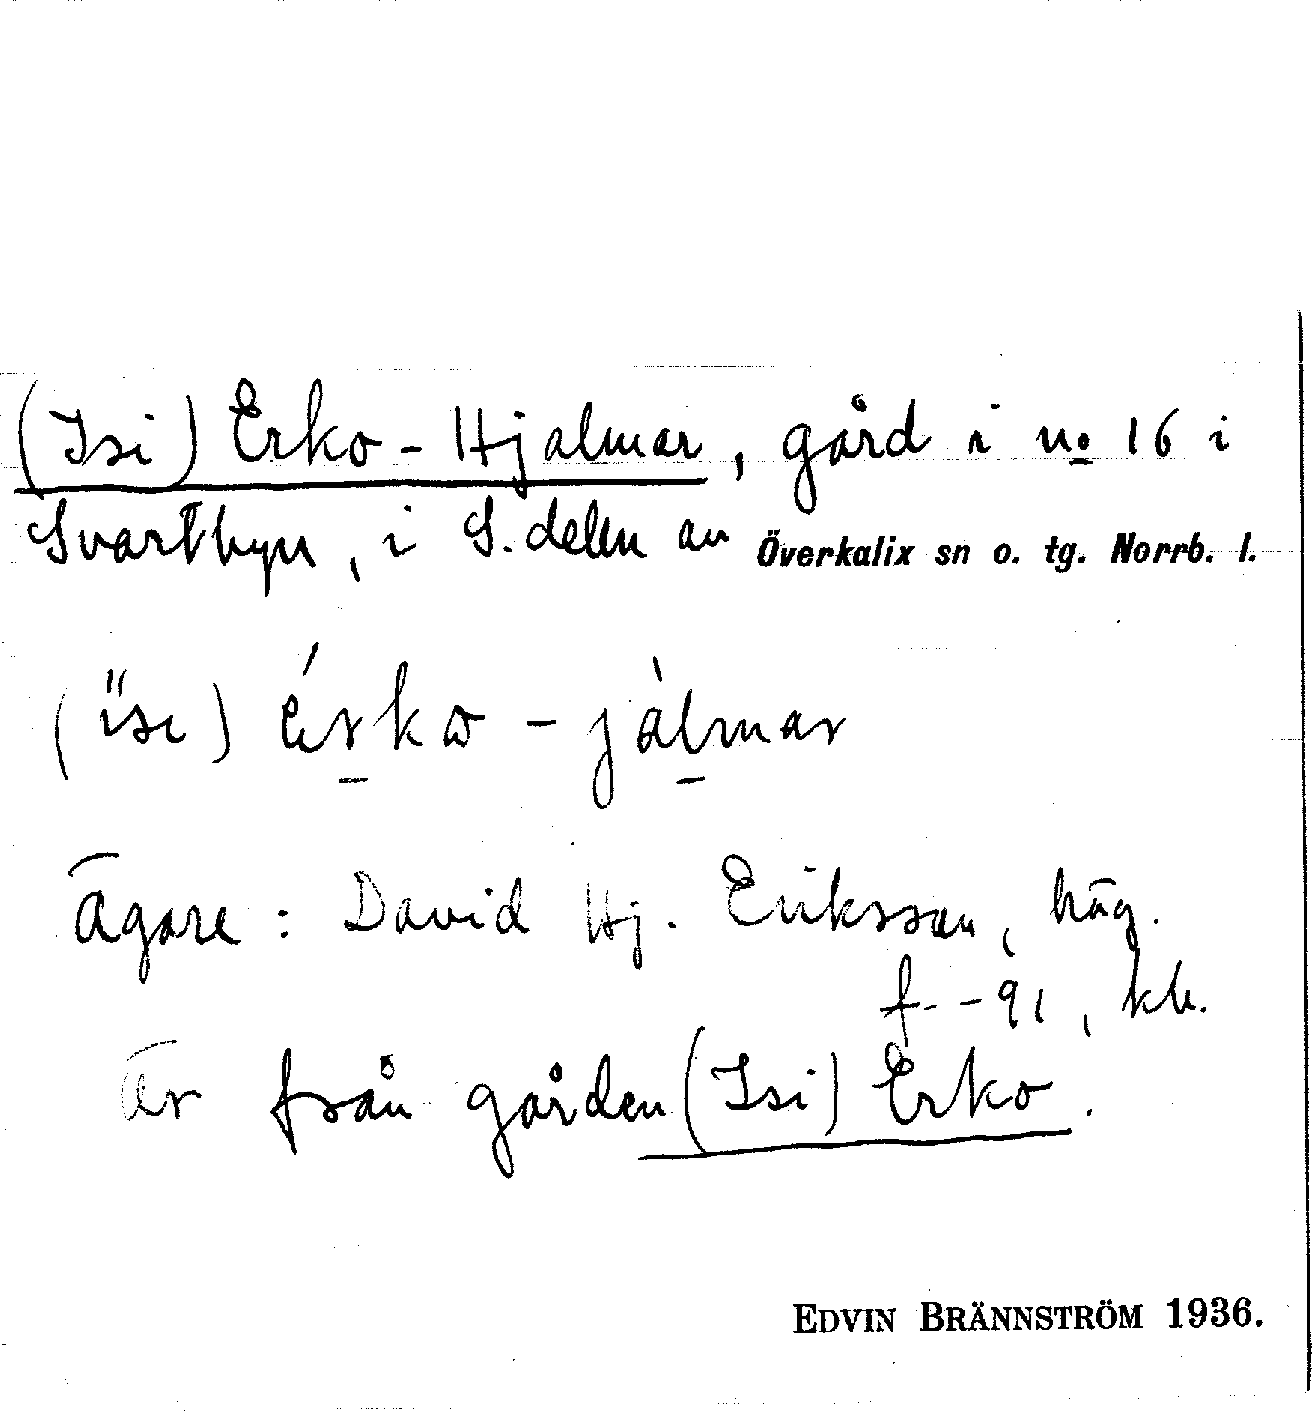 (Isi) Erko-Hjalmar, gård i no 16 i
Svartbyn, i S. delen av Överkalix sn o. tg. Norrb. l.
(ìsi) érko - jàlmar
Ägare: David Hj. Eriksson, häg.
f. -91, kb.
Är från gården (Isi) Erko.
EDVIN BRÄNNSTRÖM 1936.